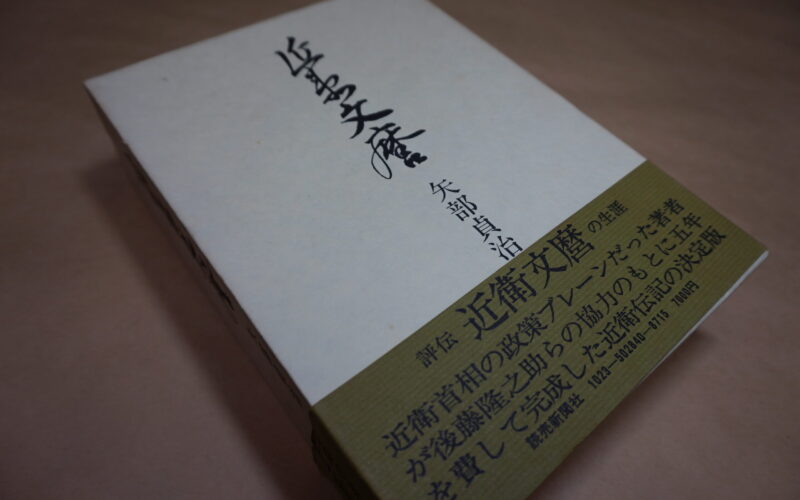 近衛文麿
矢部貞治
評伝 近衛文麿の生涯
近衛首相の政策ブレーンだった著者
が後藤隆之助らの協力のもとに五年
を費して完成した近衛伝記の決定版
読売新聞社 1023―502840―8715 7000円